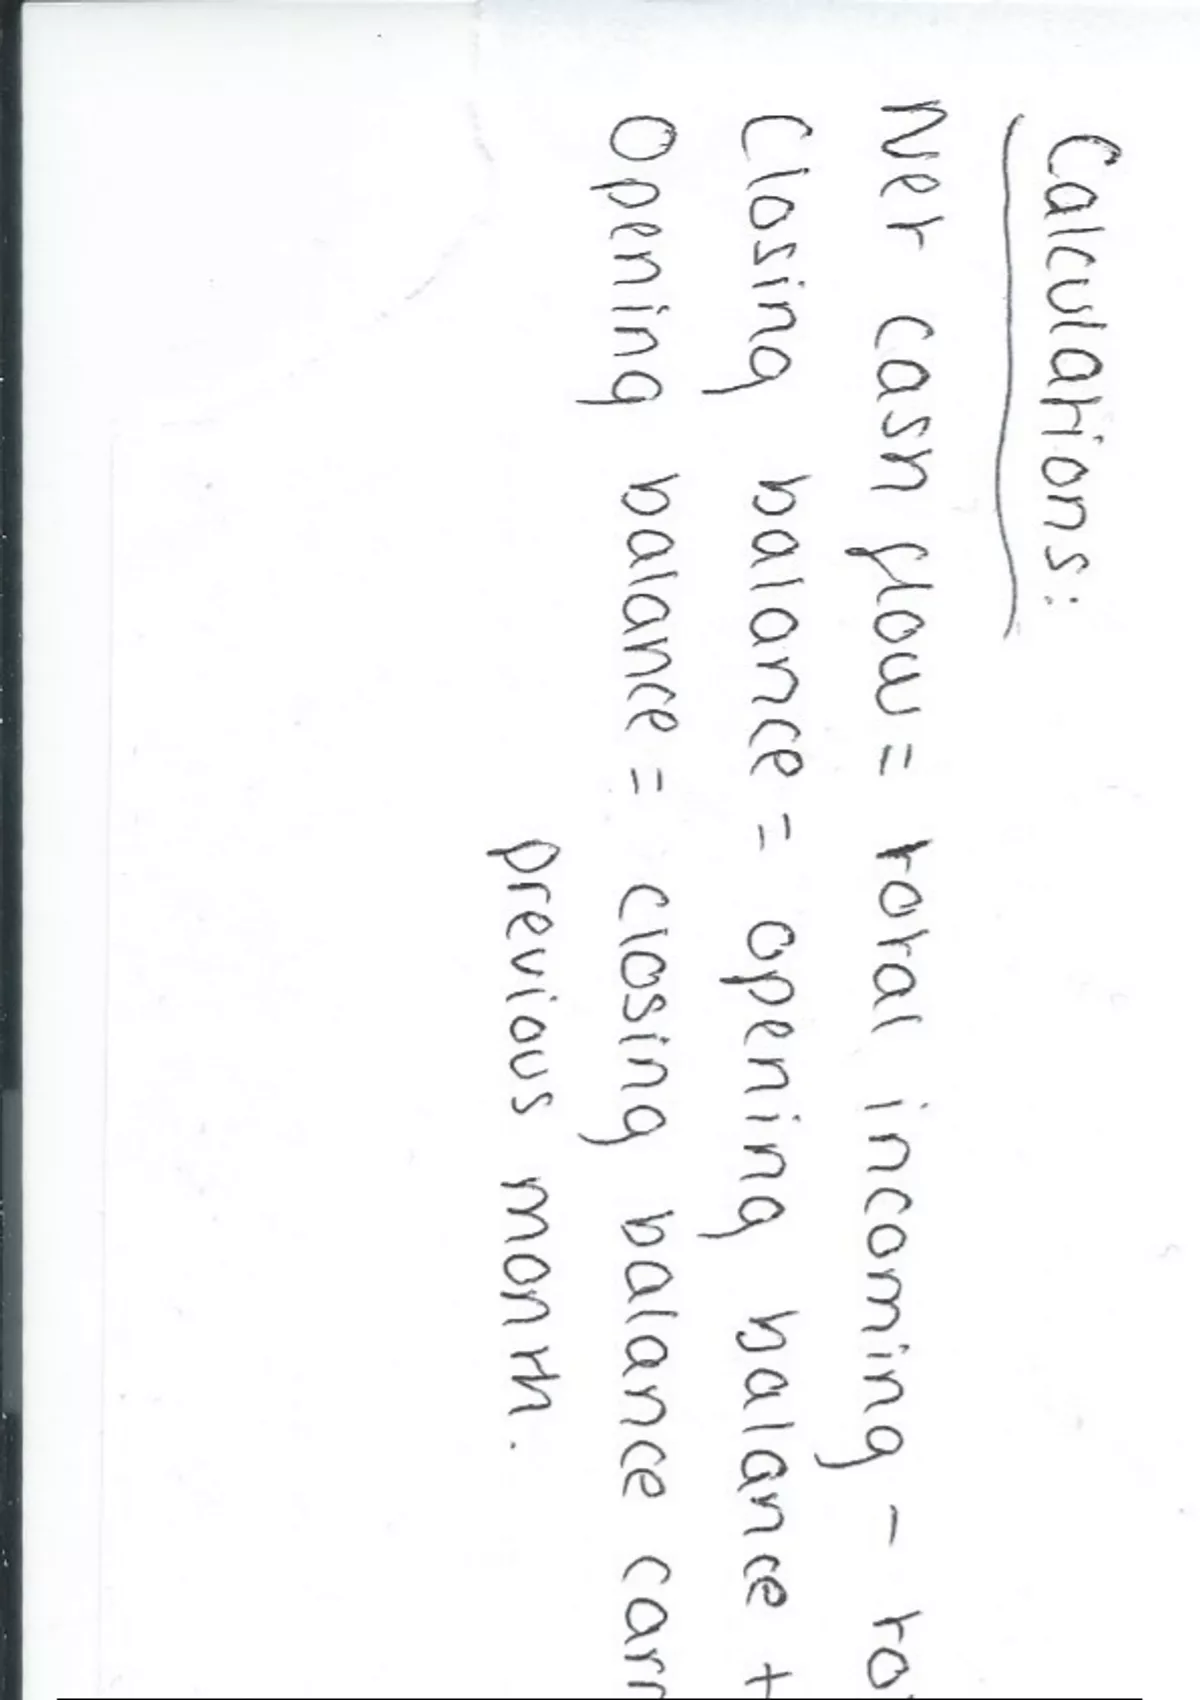 Calculations:
Net cash flow = total incoming -
Closing balance = opening balance +
Opening balance = closing balance
previous month.